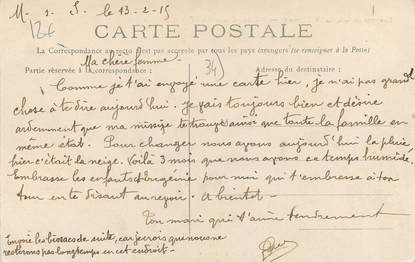 M. 1. S. le 13-2-15
12€
CARTE POSTALE
La Correspondance au recto n'est pas acceptée par tous les pays étrangers (se renseigner à la Poste)
Ma chère femme.
34
Partie réservée à la correspondance :
Adresse du destinataire :
Comme je t'ai envoyé une carte hier, je n'ai pas grand
chose à te dire aujourd'hui. Je vais toujours bien et désire
ardemment que ma missive te trouve ainsi que toute la famille en
même état. Pour changer nous avons aujourd'hui la pluie,
hier c'était la neige. Voilà 3 mois que nous avons ce temps humide.
Embrasse les enfants et Eugénie pour moi qui t'embrasse à ton
tour en te disant au revoir. A bientôt -
Ton mari qui t'aime tendrement
Envoie les bissacs de suite, car je crois que nous ne
resterons pas longtemps en cet endroit -